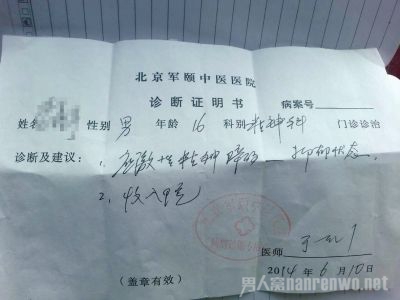 北京军颐中医医院
诊断证明书 病案号
姓名 性别 男 年龄 16 科别 精神科 门诊诊治
诊断及建议：1. 应激性精神障碍 — 抑郁状态。
2. 收入
医师
2014 年 6 月 10 日
（盖章有效）
男人窝nanrenwo.net